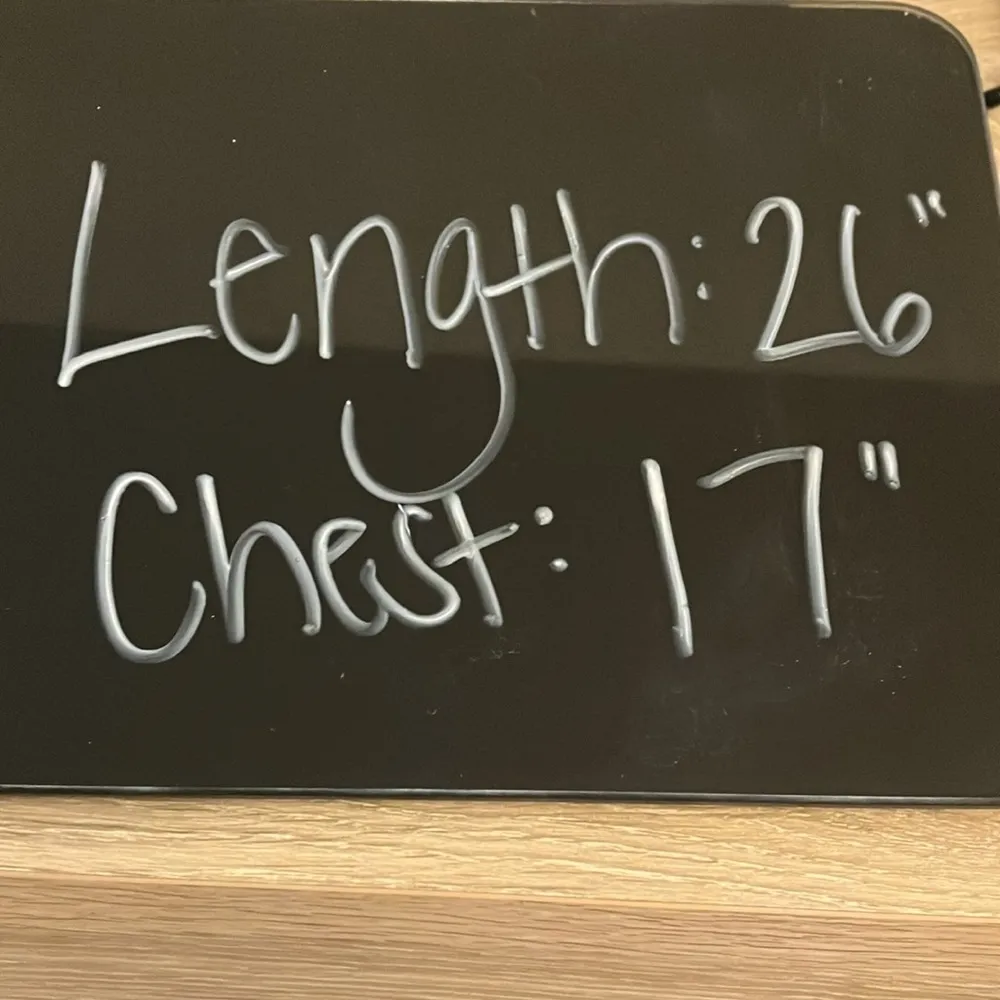 Length: 26"
Chest: 17"